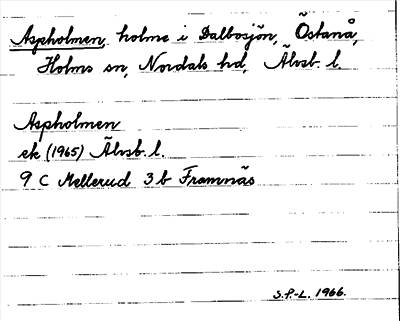 Aspholmen, holme i Dalbosjön, Östanå,
Holms sn, Nordals hd, Älvsb. l.
Aspholmen
ek (1965) Älvsb. l.
9 C Mellerud 3 b Framnäs
S.P.-L. 1966.